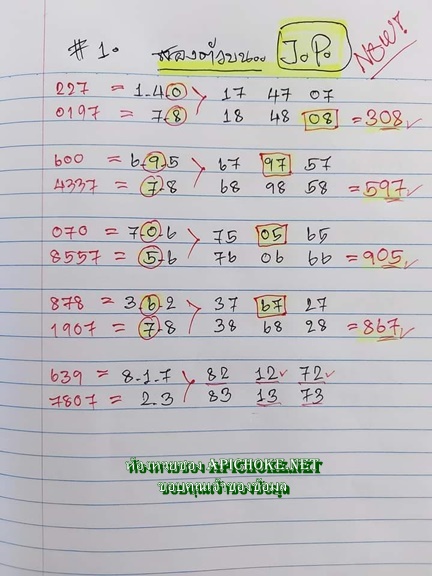 #1. สองตัวบน.. J.P. NEW!
227 = 1-4-0 > 17 47 07
0197 = 7-8 18 48 08 = 308 ✓
600 = 6-9-5 > 67 97 57
4337 = 7-8 68 98 58 = 597 ✓
070 = 7-0-6 > 75 05 65
8557 = 5-6 76 06 66 = 905 ✓
878 = 3-6-2 > 37 67 27
1907 = 7-8 38 68 28 = 867 ✓
639 = 8-1-7 > 82 12 ✓ 72 ✓
7807 = 2-3 83 13 73
ห้องหวยซอง APICHOKE.NET
ขอบคุณเจ้าของข้อมูล